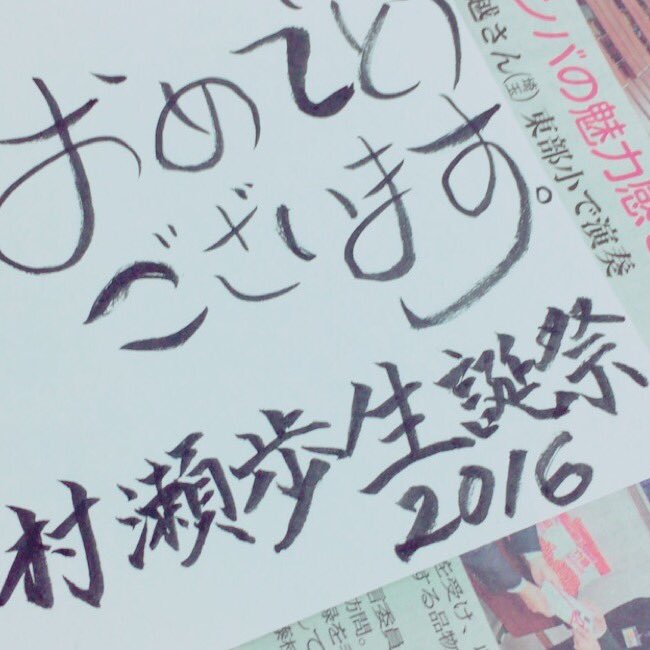 おめでとう
ございます。
村瀬歩生誕祭
2016
ンバの魅力感
越さん(埼玉)東部小で演奏